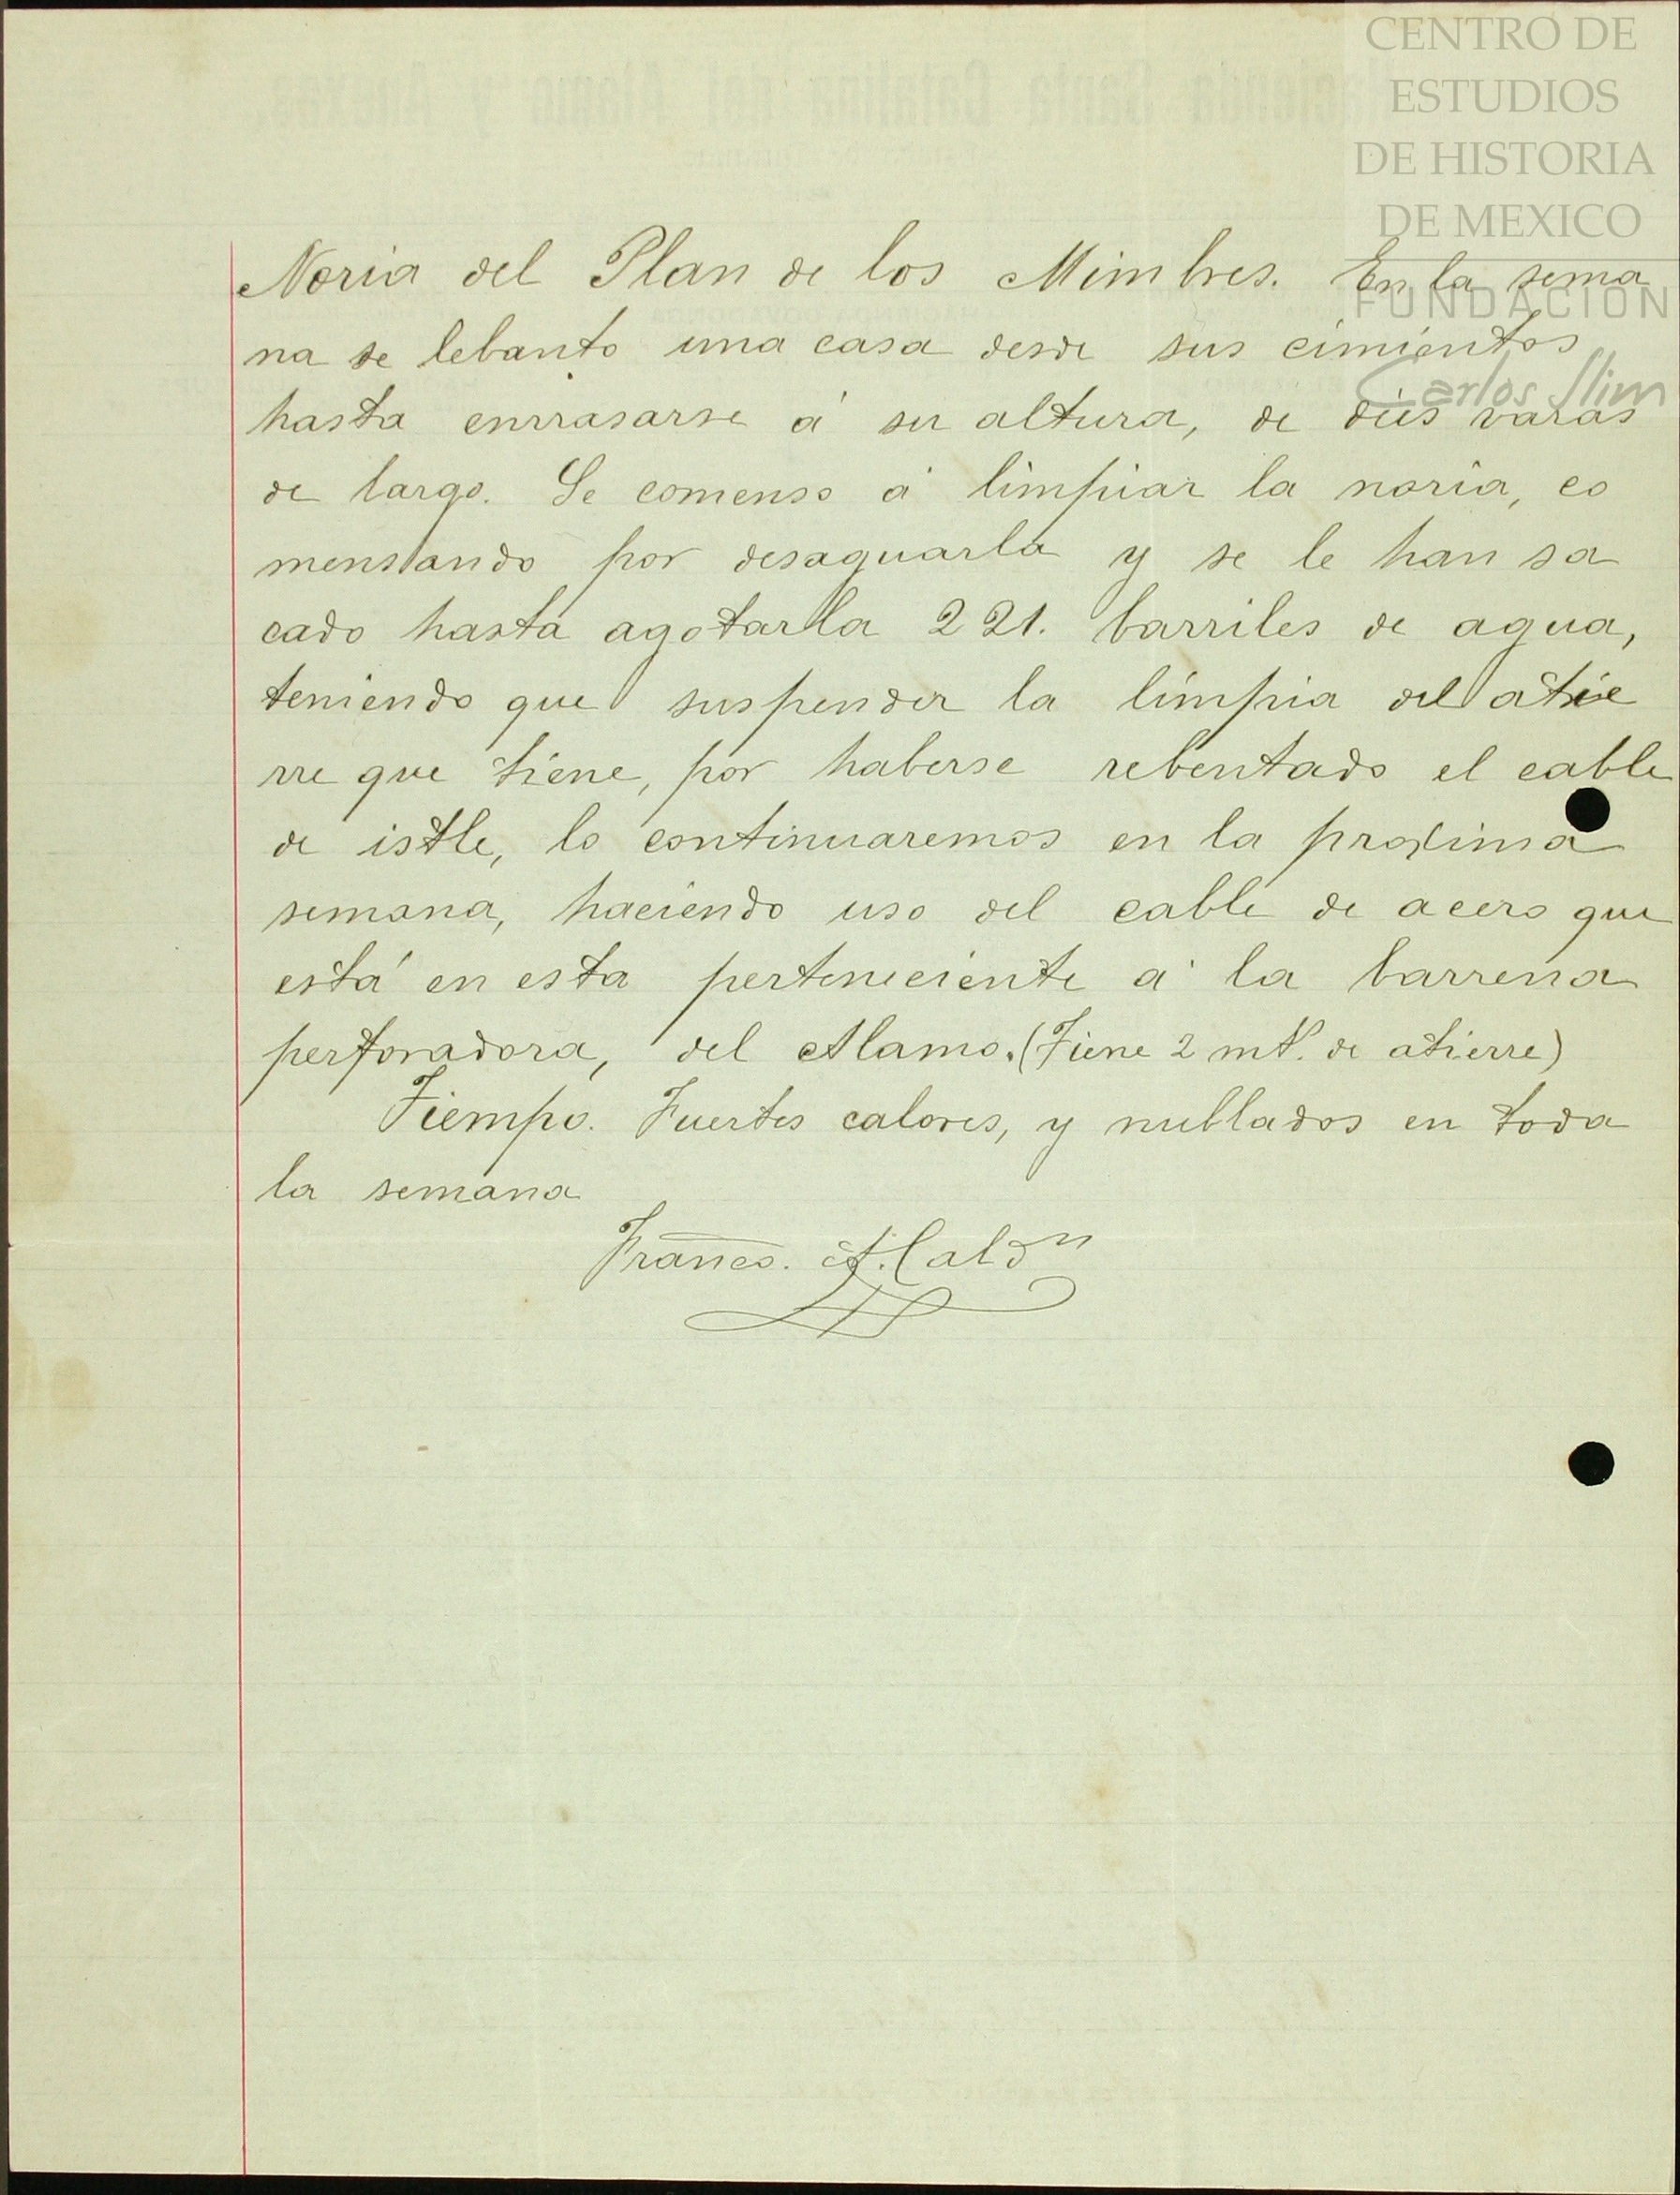 CENTRO DE
ESTUDIOS
DE HISTORIA
DE MEXICO
FUNDACION
Carlos Slim
Noria del Plan de los Mimbres. En la sema
na se lebanto una casa desde sus cimientos
hasta enrrasarse á su altura, de diés varas
de largo. Se comenso á limpiar la noria, co
mensando por desaguarla y se le han sa
cado hasta agotarla 221. barriles de agua,
teniendo que suspender la limpia del atie
rre que tiene, por haberse rebentado el cable
de istle, lo continuaremos en la proxima
semana, haciendo uso del cable de acero que
está en esta perteneciente á la barrena
perforadora, del Alamo. (Tiene 2 mt. de atierre)
Tiempo. Fuertes calores, y nublados en toda
la semana
Franco. A. Caldn